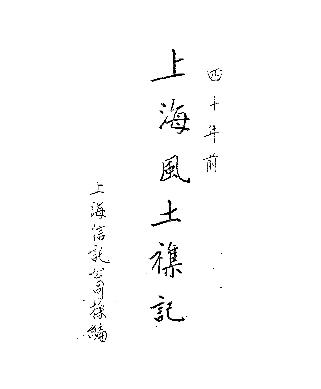 四十年前
上海風土襍記
上海信託公司採編